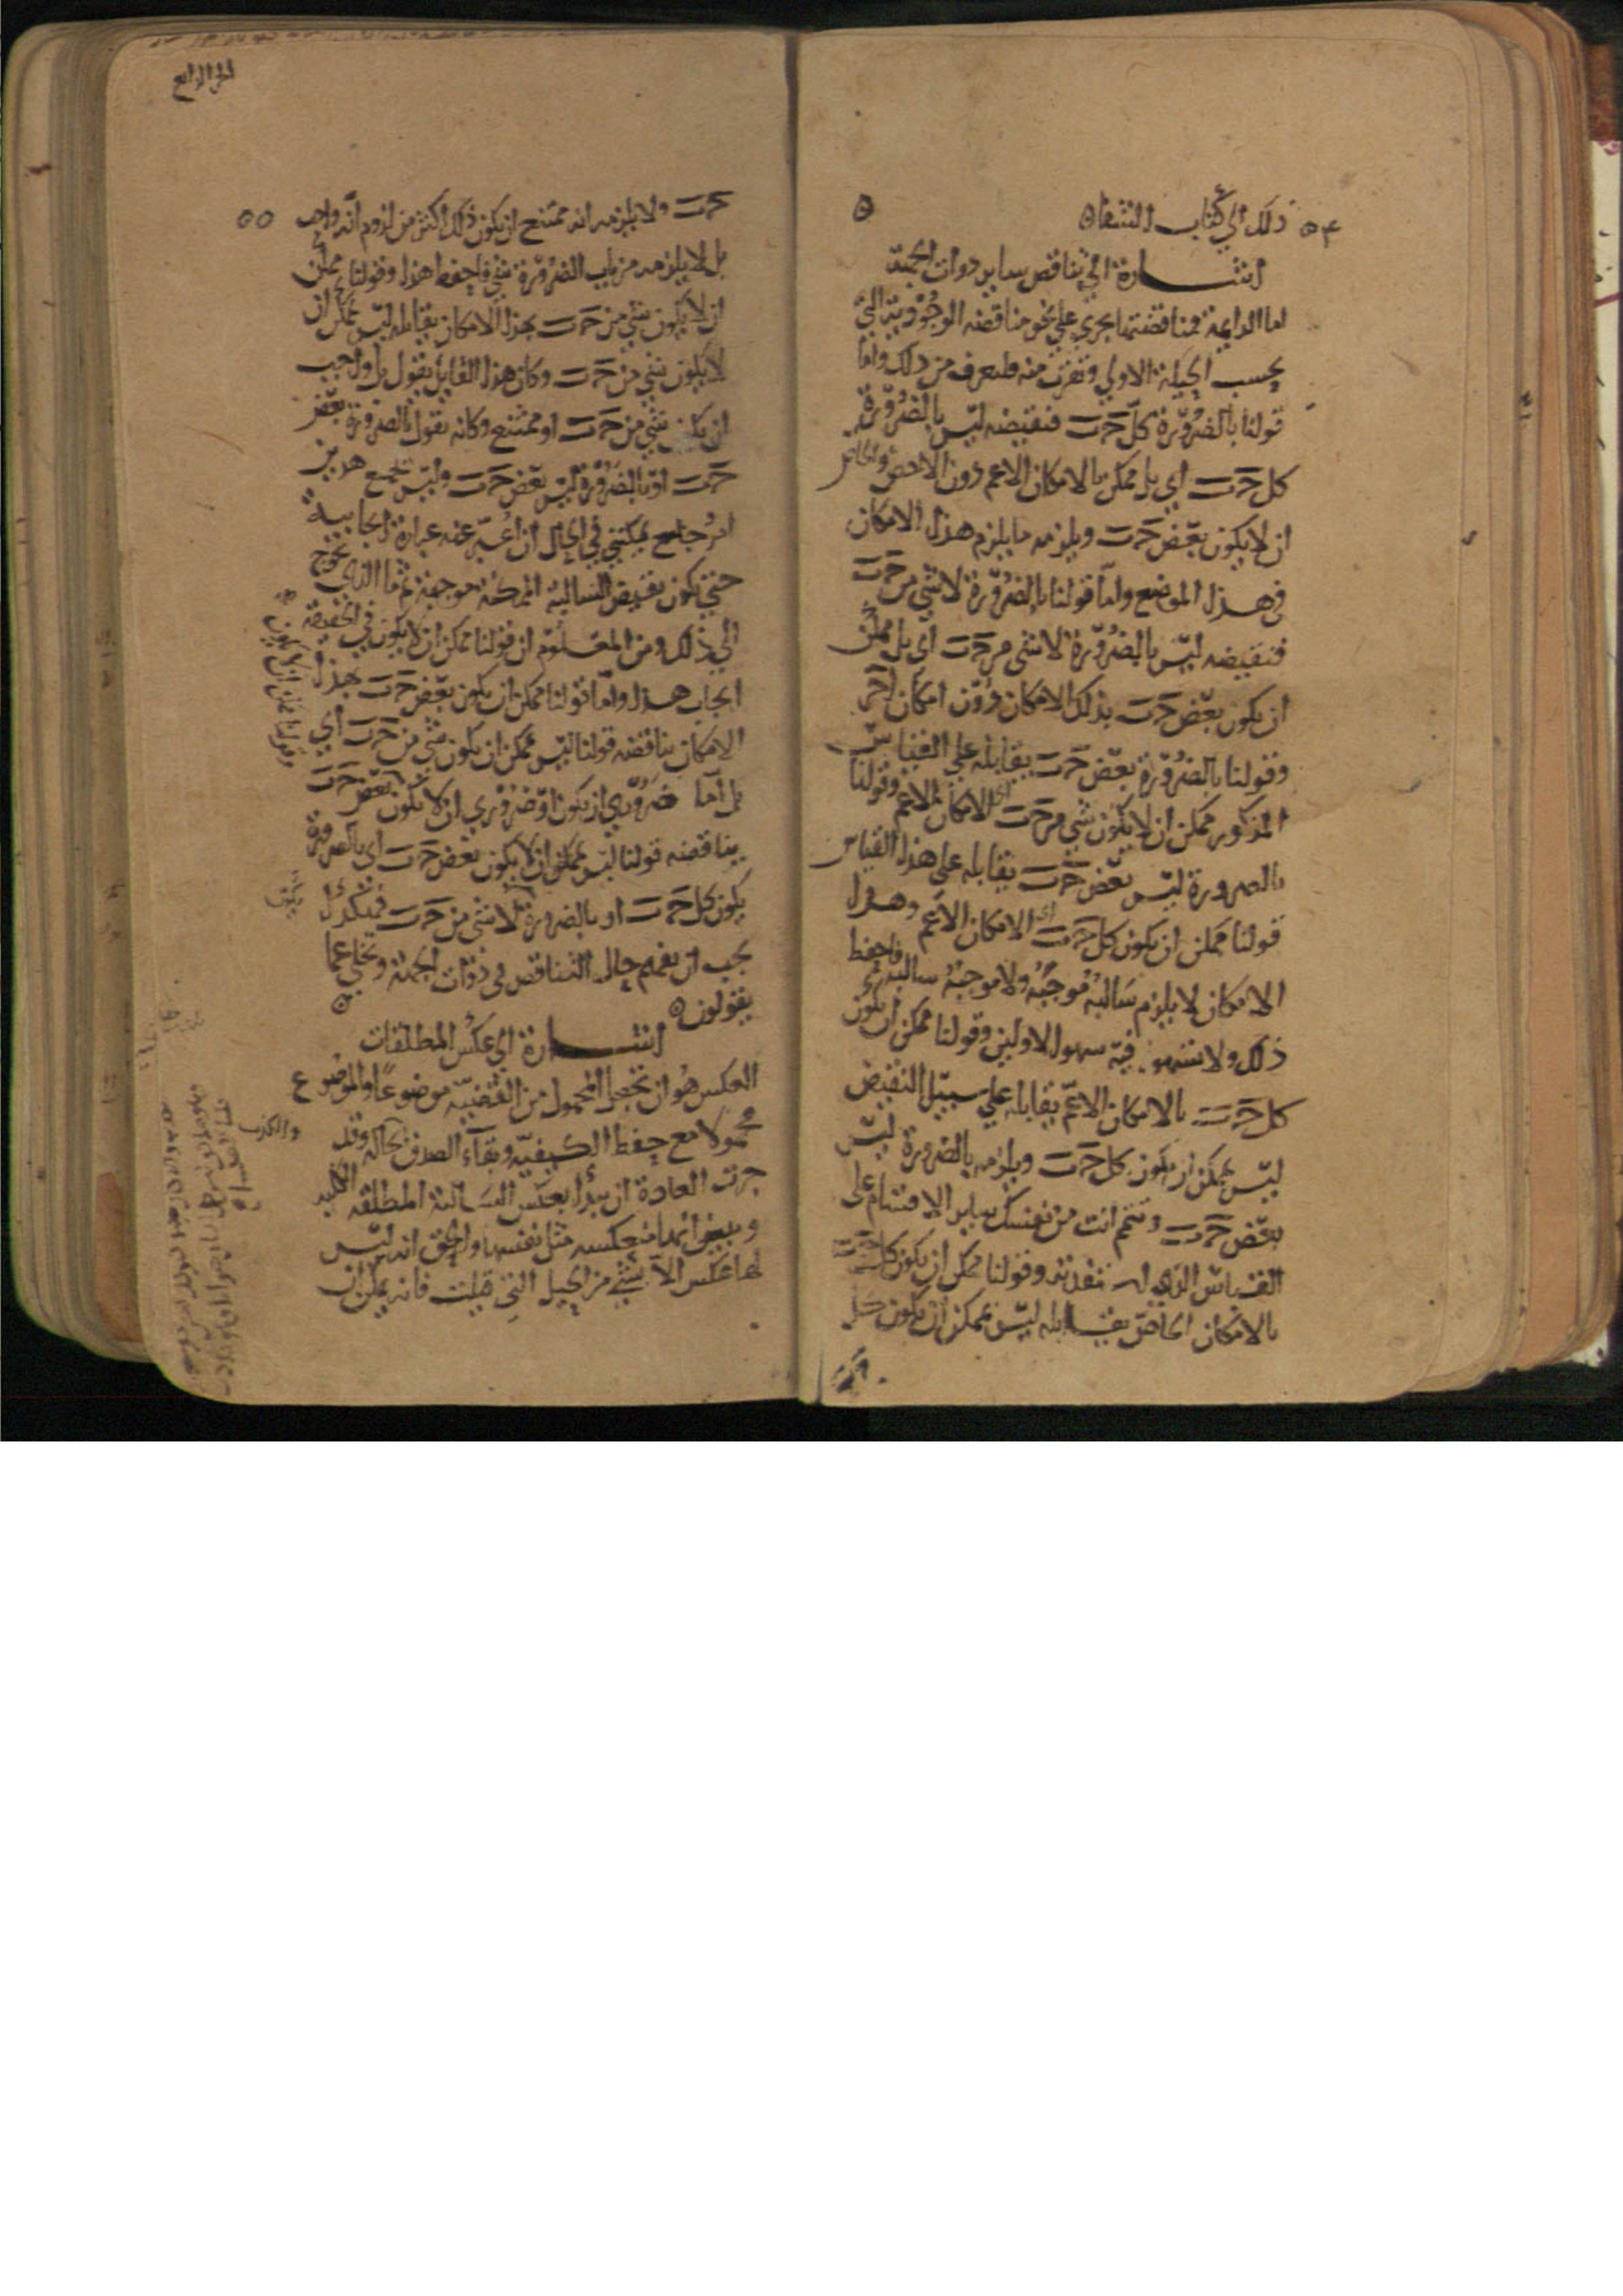 ذلك الي كتاب الشفاء
٥۴
اشارة الي تناقض ساير ذوات الجهة
اما الدايمة فمناقضتها يجري علي نحو مناقضه الوجودية التي
بحسب الحيلة الاولي وتقرب منه فلتعرف من ذلك واما
قولنا بالضرورة كل جَ بَ فنقيضه ليس بالضرورة
كل جَ بَ اي بل ممكن بالامكان الاعم دون الاخص والخاص
ان لا يكون بعض جَ بَ ويلزمه ما يلزم هذا الامكان
في هذا الموضع واما قولنا بالضرورة لا شي من جَ بَ
فنقيضه ليس بالضرورة لا شي من جَ بَ اي بل ممكن
ان يكون بعض جَ بَ بذلك الامكان دون امكان اخر
وقولنا بالضرورة بعض جَ بَ يقابله علي القياس
المذكور ممكن ان لا يكون شي من جَ بَ اي الامكان الاعم وقولنا
بالضرورة ليس بعض جَ بَ يقابله على هذا القياس
قولنا ممكن ان يكون كل جَ بَ اي الامكان الاعم وهذا
الامكان لا يلزم سالبه موجبه ولا موجبه سالبه فاحفظ
ذلك ولا تسه فيه سهو الاولين وقولنا ممكن ان يكون
كل جَ بَ بالامكان الاعم يقابله علي سبيل النقيض
ليس بممكن ان يكون كل جَ بَ ويلزمه بالضرورة ليس
بعض جَ بَ وتتمم انت من نفسك ساير الاقسام على
القياس الذي استفدته وقولنا ممكن ان يكون كل جَ بَ
بالامكان الخاص يقابله ليس بممكن ان يكون كل
جَ بَ
الرابع
٥٥
جَ بَ ولا يلزمه انه ممتنع ان يكون ذلك اكثر من لزوم انه واجب
بل لا يلزمه من باب الضرورة شي فاحفظ هذا وقولنا ممكن
ان لا يكون شي من جَ بَ بهذا الامكان يقابله ليس بممكن ان
لا يكون شي من جَ بَ وكان هذا القايل يقول بل واجب
ان يكون شي من جَ بَ او ممتنع وكانه يقول بالضرورة بعض
جَ بَ او بالضرورة ليس بعض جَ بَ وليس يجمع هذين
امر جامع يمكنني في الحال ان اعبر عنه عبارة ايجابية
حتي يكون نقيض السالبة الممكنة موجبة وما الذي يحوج
الي ذلك ومن المعلوم ان قولنا ممكن ان لا يكون في الحقيقة
ايجاب هذا واما قولنا ممكن ان يكون بعض جَ بَ بهذا
الامكان يناقضه قولنا ليس بممكن ان يكون شي من جَ بَ اي
بل اما ضروري ان يكون او ضروري ان لا يكون
وقولنا ممكن ان لا يكون
بعض جَ بَ
يناقضه قولنا ليس بممكن ان لا يكون بعض جَ بَ اي بالضرورة
يكون كل جَ بَ او بالضرورة لا شي من جَ بَ فهكذا
يجب ان يفهم حال التناقض في ذوات الجهة ويخلي عما
يقولون
اشارة الي عكس المطلقات
العكس هو ان تجعل المحمول من القضية موضوعا والموضوع
محمولا مع حفظ الكيفية وبقاء الصدق
والكذب
بحاله وقد
جرت العادة ان يبدا بعكس السالبة المطلقه الكلية
ويبين انها منعكسه مثل نفسها والحق انه ليس
لها عكس الا بشي من الحيل التي قيلت فانه يمكن ان